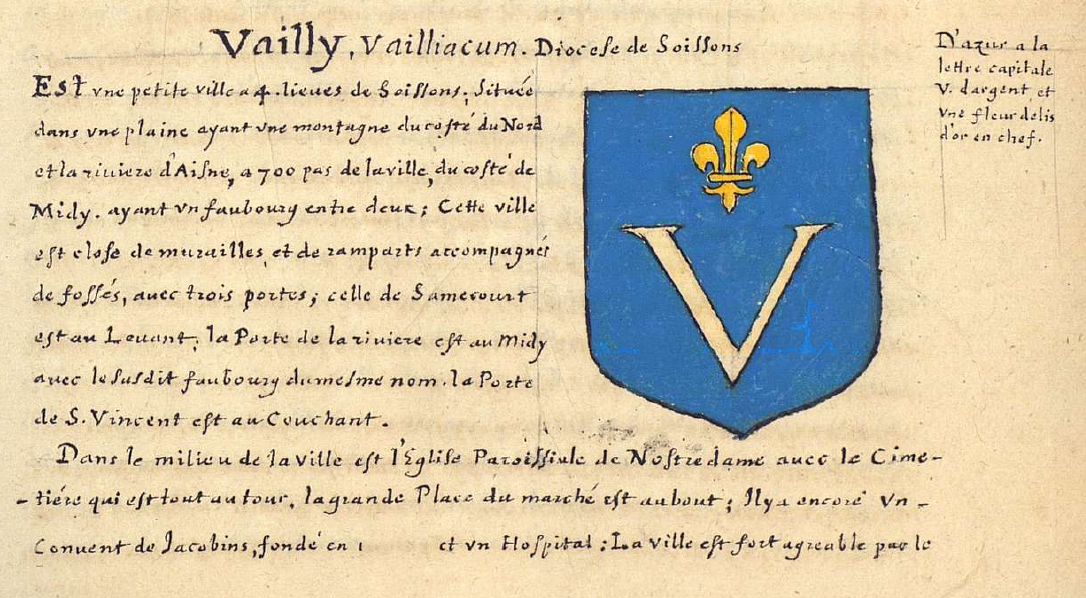 Vailly, Vailliacum. Diocese de Soissons
Est vne petite ville a 4. lieues de Soissons, Située
dans vne plaine ayant vne montagne du costé du Nord
et la riuiere d'Aisne, a 700 pas de la ville, du costé de
Midy. ayant vn faubourg entre deux; Cette ville
est close de murailles, et de ramparts accompagnés
de fossés, auec trois portes; celle de Samecourt
est au Leuant, la Porte de la riuiere est au Midy
auec le susdit faubourg du mesme nom. la Porte
de S. Vincent est au Couchant.
Dans le milieu de la ville est l'Eglise Paroissiale de Nostredame auec le Cime-
-tiére qui est tout autour, la grande Place du marché est au bout; Il y a encore vn
Conuent de Jacobins, fondé en 1 et vn Hospital; La ville est fort agreable par le
D'azur a la
lettre capitale
V. dargent, et
vne fleur de lis
d'or en chef.
V